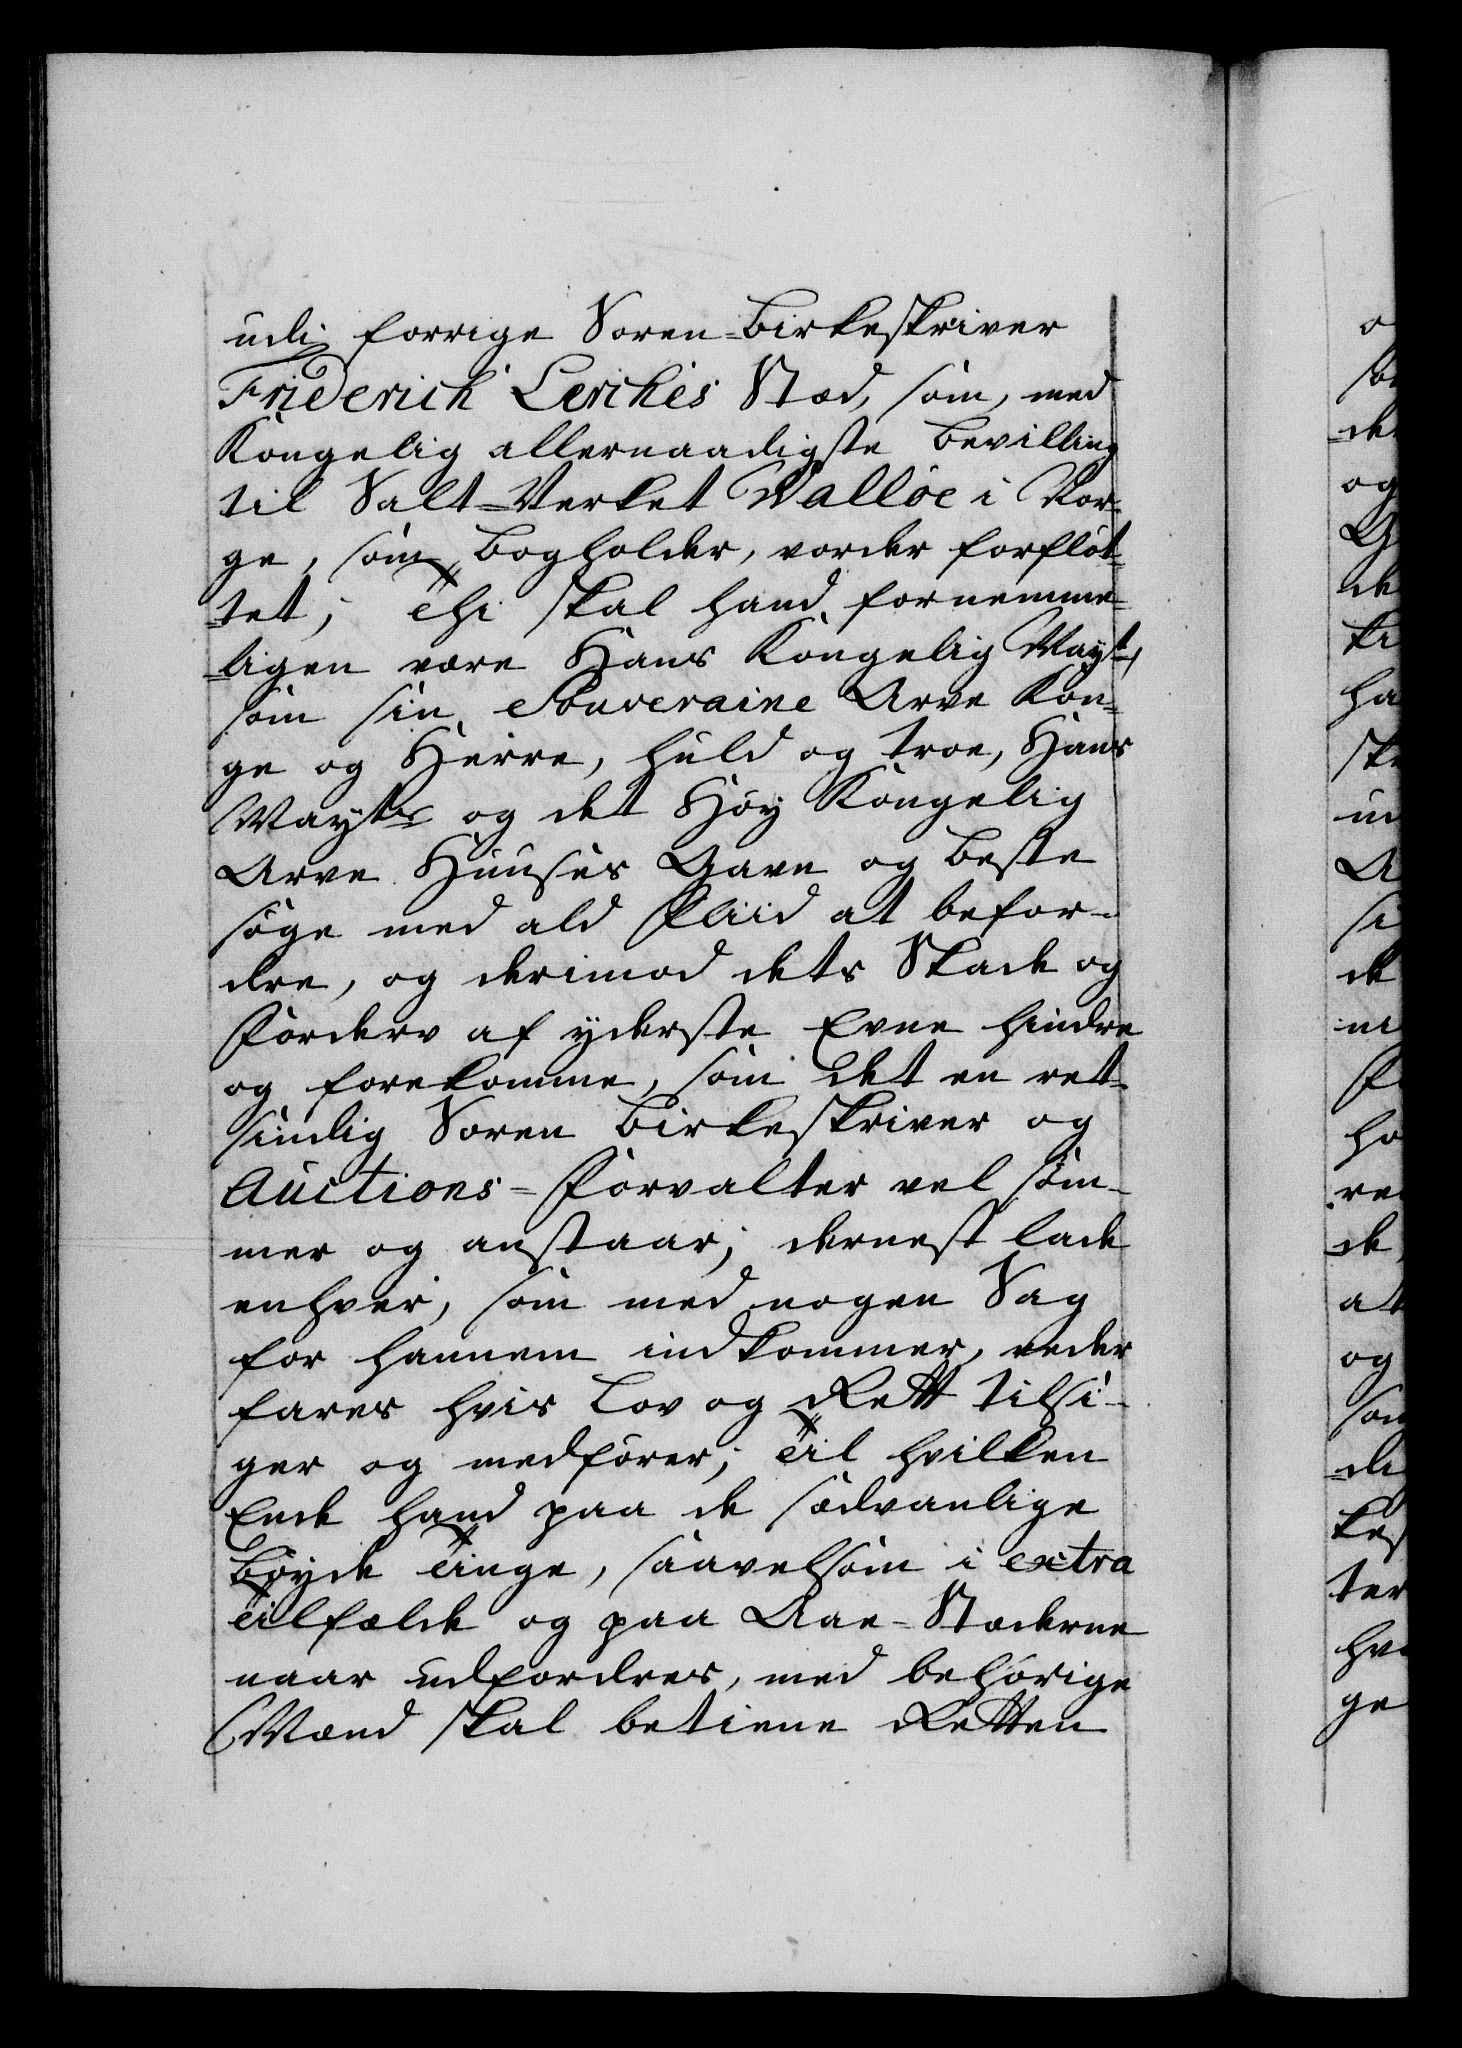 udi forrige Soren-Birkeskriver
Friderich Lerches Stæd, som, med
Kongelig allernaadigste Bevilling
til Salt-Verket Walløe i Nor-
ge, som Bogholder, vorder forfløt-
tet; Thi skal hand fornemme-
ligen være Hans Kongelig Mayt,
som sin Souveraine Arve Kon-
ge og Herre, huld og troe, Hans
Mayts og det Høy Kongelig
Arve Huuses Gavn og Beste
søge med ald Fliid at befor-
dre, og derimod dets Skade og
Forderv af yderste Evne hindre
og forekomme, som det en ret-
sindig Soren Birkeskriver og
Auctions-Forvalter vel søm-
mer og anstaar; dernest lade
enhver, som med nogen Sag
for hannem indkommer, veder
fares hvis Lov og Rett tilsi-
ger og medfører; Til hvilken
Ende hand paa de sædvanlige
Bøyde Tinge, saavelsom i extra
Tilfælde og paa Aae-Stæderne
naar udfordres, med behørige
Mænd skal betiene Retten